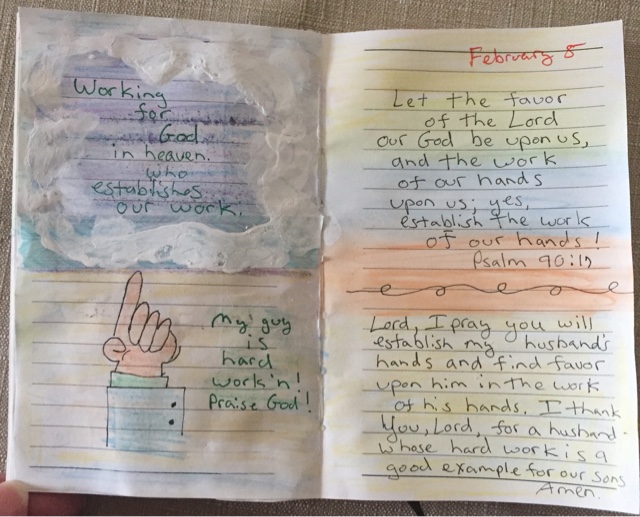 Working
for
God
in heaven.
who
establishes
our work.
My guy
is
hard
work'n!
Praise God!
February 8
Let the favor
of the Lord
our God be upon us,
and the work
of our hands
upon us; yes,
establish the work
of our hands!
Psalm 90:17
Lord, I pray you will
establish my husband's
hands and find favor
upon him in the work
of his hands. I thank
You, Lord, for a husband
whose hard work is a
good example for our sons
Amen.